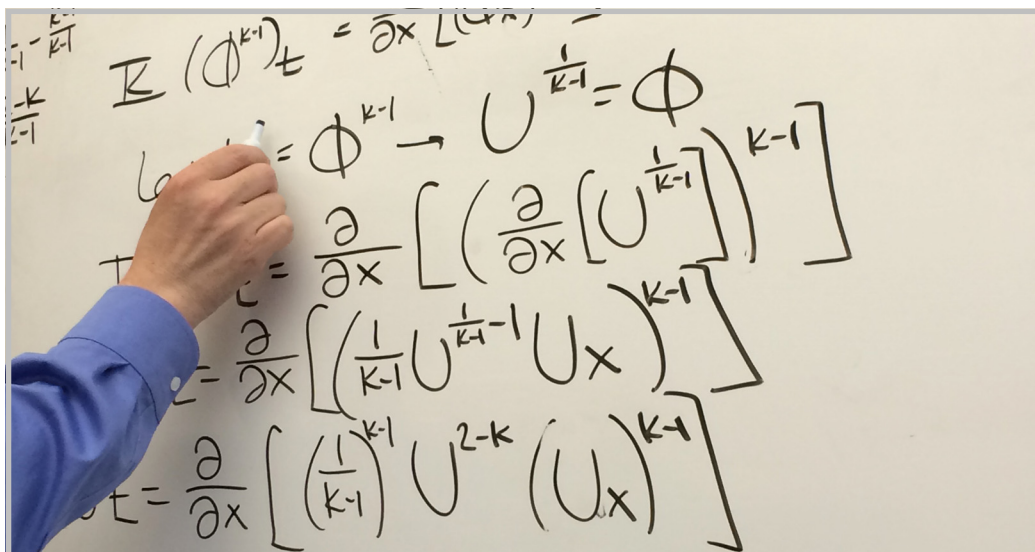 K (ϕ^{k-1})_t = ∂/∂x [(
= ϕ^{k-1} → U^{1/(k-1)} = ϕ
t = ∂/∂x [(∂/∂x [U^{1/(k-1)}])^{k-1}]
t = ∂/∂x [(1/(k-1) U^{1/(k-1) - 1} U_x)^{k-1}]
t = ∂/∂x [(1/(k-1))^{k-1} U^{2-k} (U_x)^{k-1}]